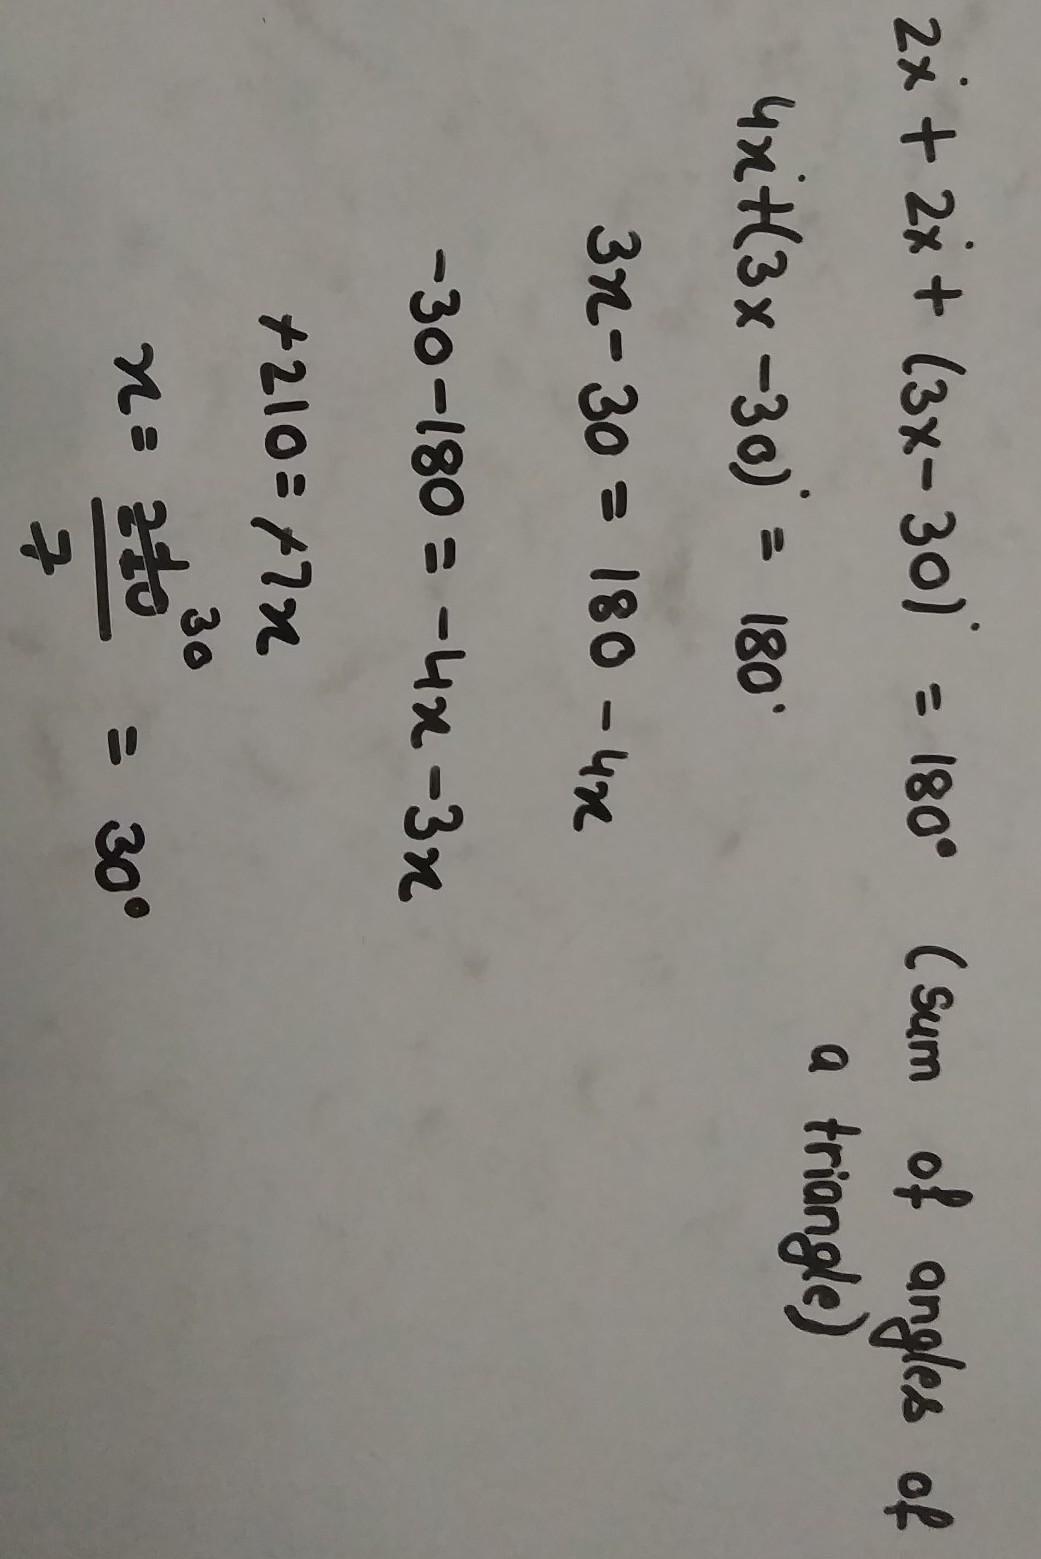 2x° + 2x° + (3x - 30)° = 180° (sum of angles of
a triangle)
4x° + (3x - 30)° = 180°
3x - 30 = 180 - 4x
-30 - 180 = -4x - 3x
+210 = +7x
x = 210/7 30 = 30°